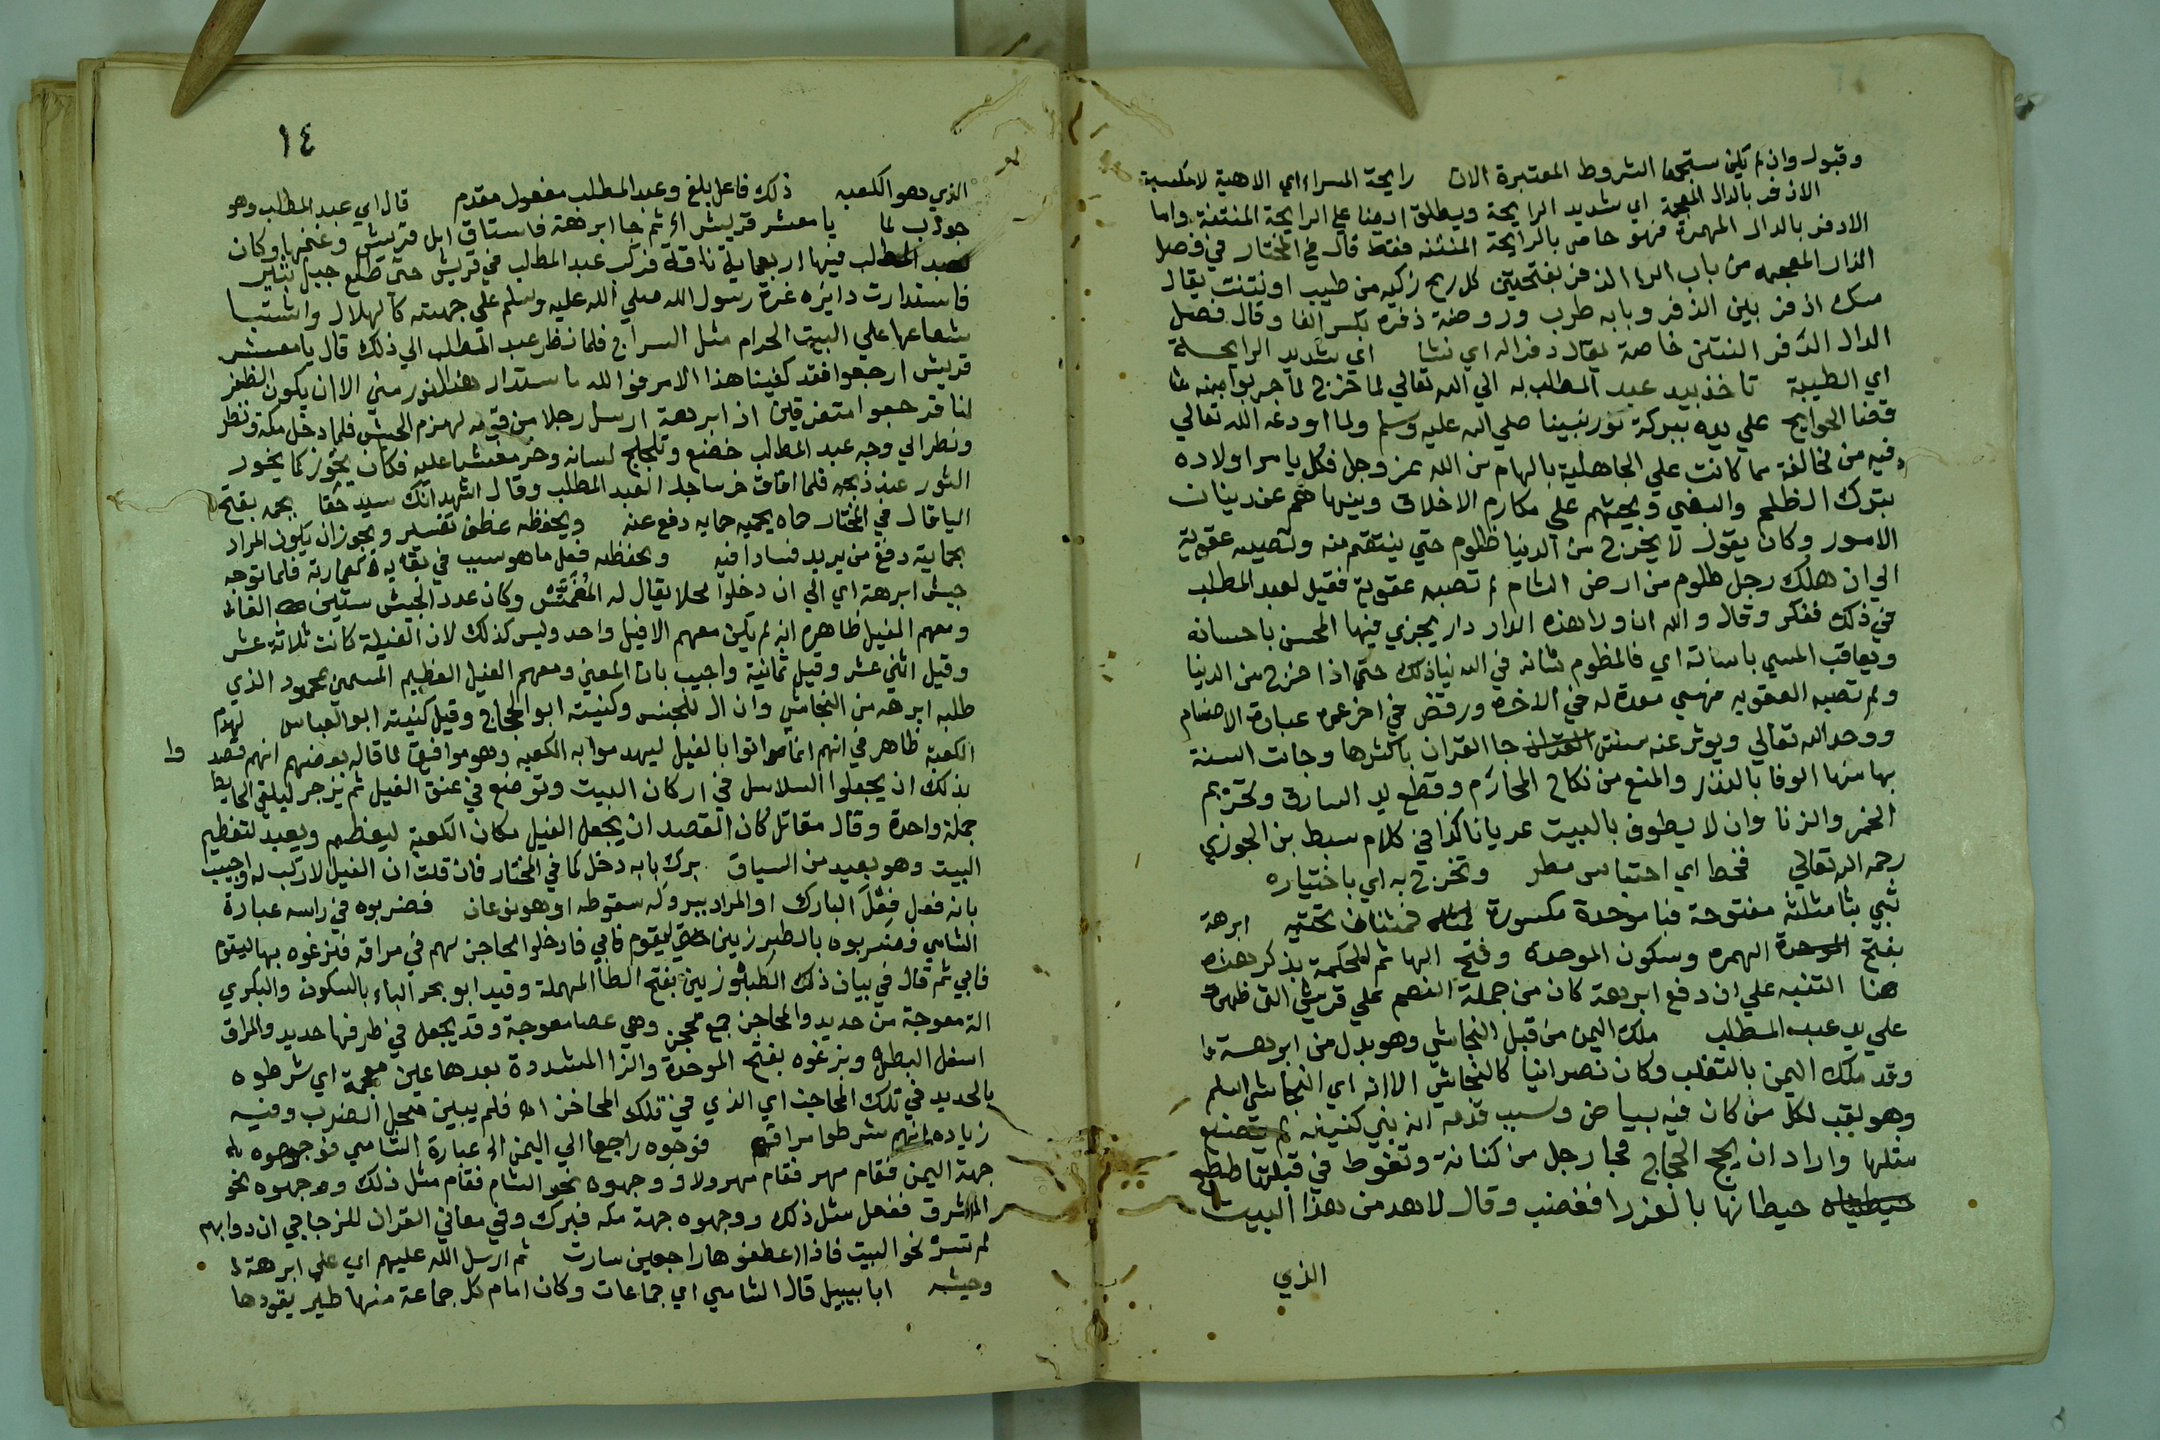 وقبول وان لم يكن ستجمعا الشروط المعتبرة الات رايحة المسراي الاهية لامكسبة
الاذفر بالذال المعجمة اي شديد الرايحة ويطلق ايضا علي الرايحة المنتنة واما
الادفر بالدال المهملة فهو خاص بالرايحة المنتنه فقط قال في المختار في فصل
الذال المعجمه من باب الرا الذفر بفتحتين كل ريح زكيه من طيب او نتن يقال
مسك اذفر بين الذفر وبابه طرب وروضة ذفره بكسر الفا وقال فصل
الدال الدفر النتن خاصة يقال دفرا له اي نتنا اي شديد الرايحة
اي الطيبة تاخذ بيد عبد المطلب به الي الله تعالي لما خرج لما جربوا منه
قضا الحوايج علي يديه ببركة نور نبينا صلي الله عليه وسلم ولما اودعه الله تعالي
فيه من مخالفة مما كانت علي الجاهلية بالهام من الله عز وجل فكان يامر اولاده
بترك الظلم والبغي ويحثهم علي مكارم الاخلاق وينهاهم عن دنيات
الامور وكان يقول لا يخرج من الدنيا ظلوم حتي ينتقم منه وتصيبه عقوبة
الي ان هلك رجل ظلوم من ارض الشام لم تصبه عقوبة فقيل لعبد المطلب
في ذلك ففكر وقال والله ان ورا هذه الدار دار يجزي فيها المحسن باحسانه
ويعاقب المسي باساته اي فالمظلوم شانه في الدنيا ذلك حتي اذا خرج من الدنيا
ولم تصبه العقوبه فهي معدة له في الاخره ورفض في اخر عمره عبادة الاصنام
ووحد الله تعالي ويوثر عنه سنن جا القران باكثرها وجات السنة
بها منها الوفا بالنذر والمنع من نكاح المحارم وقطع يد السارق وتحريم
الخمر والزنا وان لا يطوف بالبيت عريانا كذا في كلام سبط بن الجوزي
رحمه الله تعالي قحط اي احتباس مطر وتخرج به اي باختياره
ثبي بثا مثلثة مفتوحة فبا موحدة مكسورة فمثناة تحتيه ابرهة
بفتح الهمزه وسكون الموحدة وفتح الها ثم الحكمة بذكر هذه
هنا التنبه علي ان دفع ابرهة كان من جملة النعم علي قريش التي ظهرت
علي يد عبد المطلب ملك اليمن من قبل النجاشي وهو بدل من ابرهة
وقد ملك اليمن بالتغلب وكان نصرانيا كالنجاشي الا انه اي النجاشي اسلم
وهو لقب لكل من كان فيه بياض وسبب قدمه انه بني كنيسه لم يصنع
مثلها واراد ان يحج الحجاج فجا رجل من كنانة وتغوط في قبلتها ولطخ
حيطانها بالعذرا فغضب وقال لاهدمن هذا البيت
الذي
١٤
الذي هو الكعبه ذلك فاعل بلغ وعبد المطلب مفعول مقدم قال اي عبد المطلب وهو
جواب لما يا معشر قريش الخ ثم جا ابرهة فاستاق ابل قريش وغنمها وكان
لعبد المطلب فيها اربعماية ناقة فركب عبد المطلب في قريش حتي طلع جبل ثبير
فاستدارت دايره غرة رسول الله صلي الله عليه وسلم علي جبهته كالهلال واشتد
شعاعها علي البيت الحرام مثل السراج فلما نظر عبد المطلب الي ذلك قال يا معشر
قريش ارجعوا فقد كفيتنا هذا الامر فوالله ما استدار هذا النور مني الا ان يكون الظفر
لنا فرجعوا متفرقين اذ ابرهة ارسل رجلا من قومه ليهزم الجيش فلما دخل مكة ونظر
ونظر الي وجه عبد المطلب خضع وتلجلج لسانه وخر مغشيا عليه فكان يخور كما يخور
الثور عند ذبحه فلما افاق خر ساجدا لعبد المطلب وقال اشهد انك سيد حقا يحمه بفتح
اليا قال في المختار حماه يحميه حمايه دفع عنه ويحفظه عطف تفسير ويجوز ان يكون المراد
بحماية دفع من يريد فسادا فيه وبحفظه فعل ما هو سبب في بقايه كعمارته فلما توجه
جيش ابرهة اي الي ان دخلوا محلا يقال له المُغَمَّس وكان عدد الجيش ستين الفا
ومعهم الفيل ظاهره انه لم يكن معهم الا فيل واحد وليس كذلك لان الفيلة كانت ثلاثة عشر
وقيل اثني عشر وقيل ثمانية واجيب بان المعني ومعهم الفيل العظيم المسمي محمود الذي
طلبه ابرهه من النجاشي وان ال للجنس وكنيته ابو الحجاج وقيل كنيته ابو العباس لهدم
الكعبة ظاهر في انهم انما اتوا بالفيل ليهدموا به الكعبه وهو موافق لما قاله بعضهم انهم قصد وا
بذلك ان يجعلوا السلاسل في اركان البيت وتوضع في عنق الفيل ثم يزجر ليلقي الحايط
جملة واحدة وقال مقاتل كان القصد ان يجعل الفيل مكان الكعبة ليعظم ويعبد لتعظيم
البيت وهو بعيد من السياق برك بابه دخل كما في المختار فان قلت ان الفيل لا ركب له واجيب
بانه فعل فِعْلَ البارك او المراد ببروكه سقوطه او هو نوعان فضربوه في راسه عبارة
الشامي وضربوه بالطبرزين ليقوم فابي فادخلوا المحاجن لهم في مراقه فبزغوه بها ليقوم
فابي ثم قال في بيان ذلك الطبرزين بفتح الطا المهملة وقيد ابو بحر الباء بالسكون والبكري
الة معوجة من حديد والمحاجن جمع محجن وهي عصا معوجة وقد يجعل في طرفها حديد والمراق
اسفل البطن وبزغوه بفتح الموحدة والزا المشددة بعدها غين معجمة اي شرطوه
بالحديد في تلك المحاجن اي الذي في تلك المحاجن اه فلم يبين محل الضرب وفيه
زيادة انهم شرطوا مراقه فوجهوه راجعا الي اليمن الخ عبارة الشامي فوجهوه
جهة اليمن فقام مهرولا ووجهوه نحو الشام فقام مثل ذلك ووجهوه نحو
المشرق ففعل مثل ذلك ووجهوه جهة مكه فبرك وفي معاني القران للزجاجي ان دوابهم
لم تسر نحو البيت فاذا اعطفوها راجعين سارت ثم ارسل الله عليهم اي علي ابرهة
وجيشه ابابيل قال الشامي اي جماعات وكان امام كل جماعة منها طير يقودها